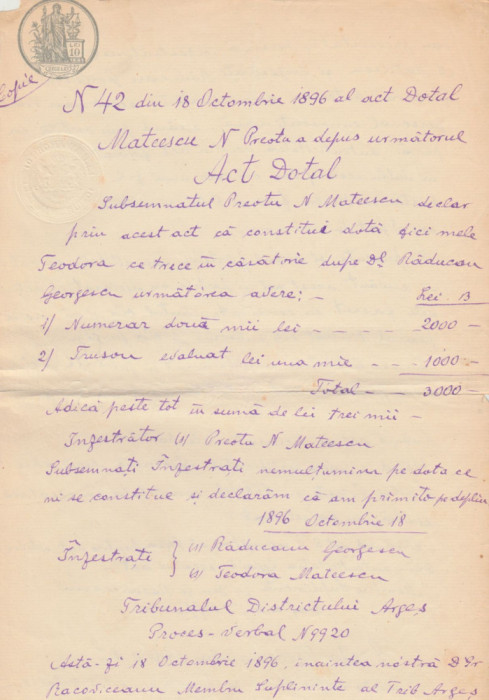 LEI 10
Copie
N 42 din 18 Octombrie 1896 al act Dotal
Mateescu N Preotu a depus urmatorul
Act Dotal
Subsemnatul Preotu N Mateescu declar
prin acest act că constitui dotă fici mele
Teodora ce trece în căsătorie dupe Dl Răducanu
Georgescu urmatórea avere; — Lei B
1/ Numerar două mii lei — — — — 2000 —
2/ Trusou evaluat lei una mie — — — 1000 —
Total — — 3000
Adică peste tot în sumă de lei trei mii —
Inzestrător (s) Preotu N Mateescu
Subsemnați Inzestrați nemulțumim pe dota ce
ni se constitui și declarăm că am primito pe deplin
1896 Octombrie 18
Înzestrați } (s) Răducanu Georgescu
(s) Teodora Mateescu
Tribunalul Districtului Argeș
Proces-verbal N 9920
Astă-zi 18 Octombrie 1896, inaintea nóstră D Gr
Racoviceanu Membru Suplininte al Trib Argeș